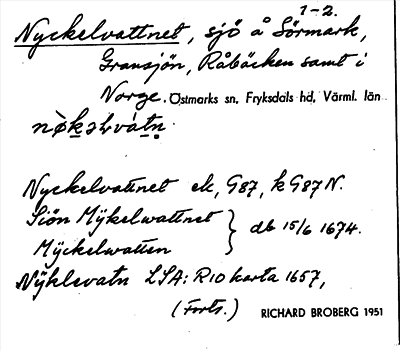 1-2.
Nyckelvattnet, sjö å Sörmark,
Gransjön, Råbäcken samt i
Norge. Östmarks sn, Fryksdals hd, Värml. län
Nyckelvattnet ek, G87, kG87N.
Siön Mÿkelwattnet
Mÿckelwatten } db 15/6 1674.
Nÿklevatn LSA: R10 karta 1657,
(Forts.) RICHARD BROBERG 1951